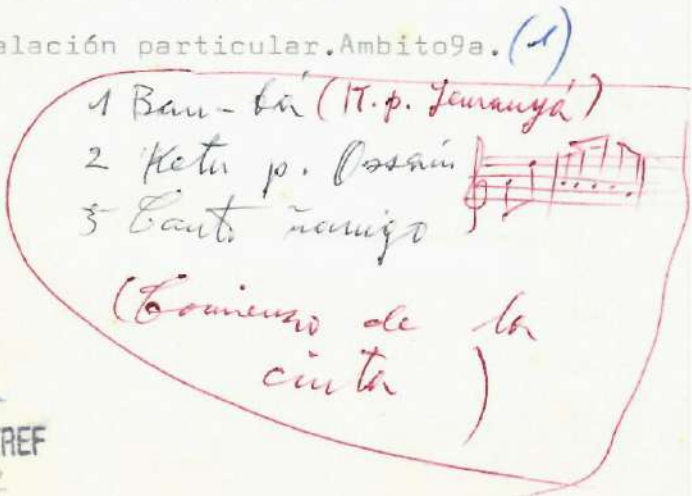 alación particular.Ambito9a.(1)
1 Ban-bá (T.p. Jeuranyá)
2 Ketu p. Ossain
3 Canto ñañigo
(Comienzo de la
cinta)
TREF